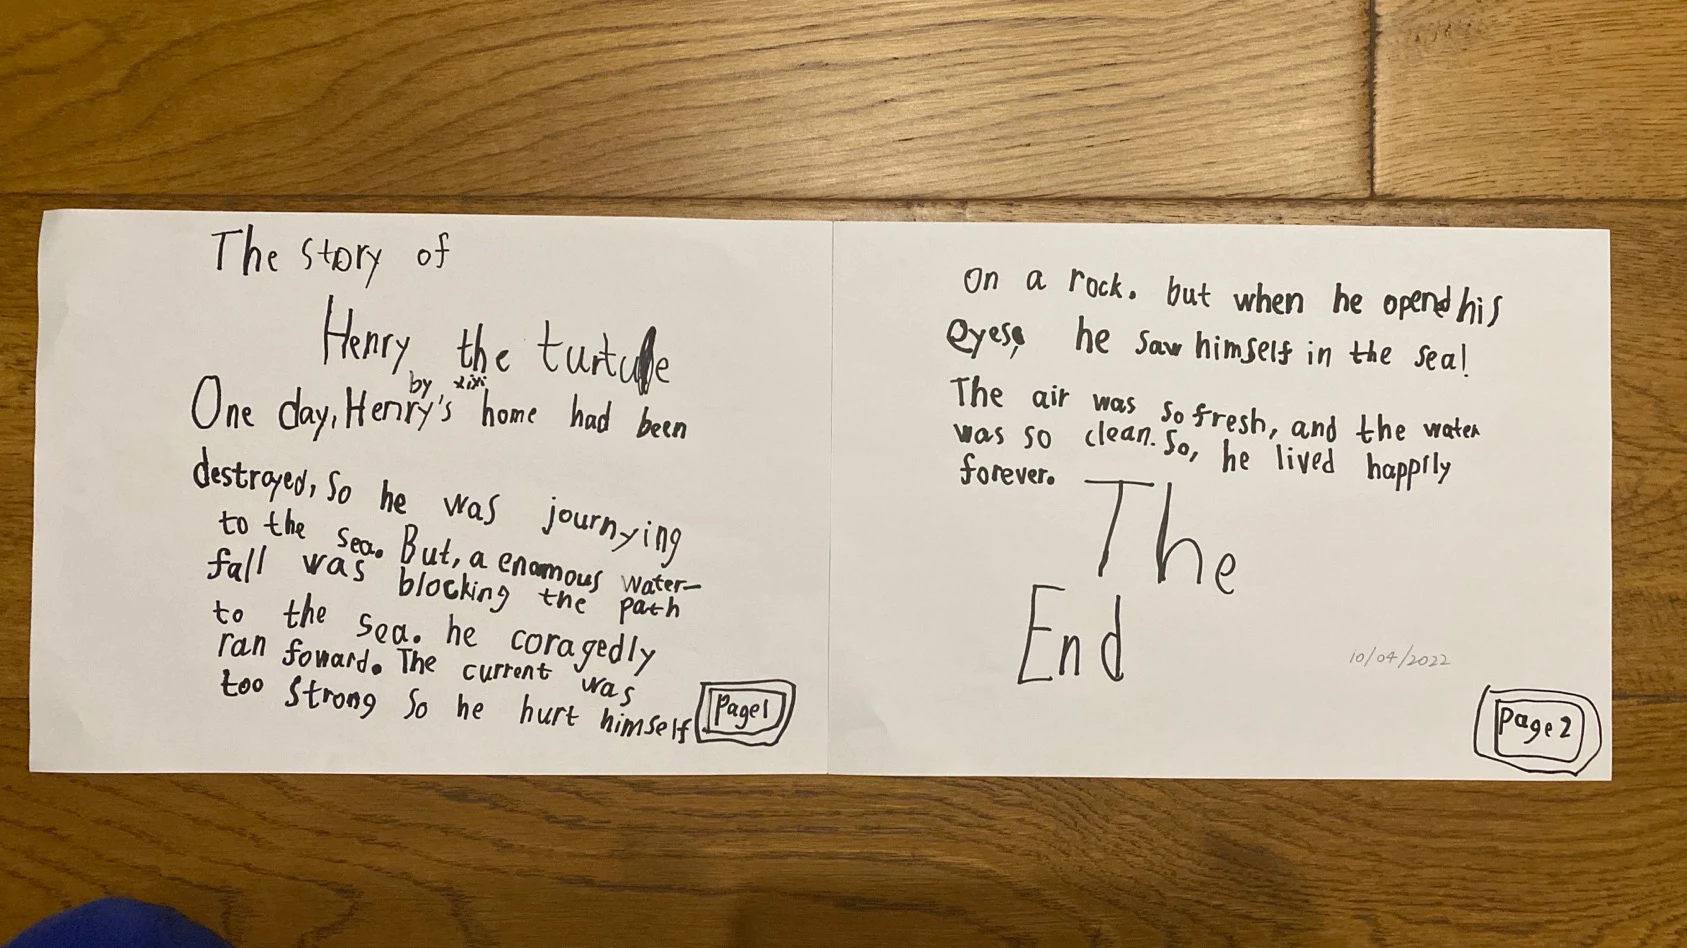 The story of
Henry the turtule
by xixi
One day, Henry's home had been
destroyed, so he was journying
to the sea. But, a enamous water-
fall was blocking the path
to the sea. he coragedly
ran foward. The current was
too strong so he hurt himself
Page1
on a rock. but when he opend his
eyes, he saw himself in the sea!
The air was so fresh, and the water
was so clean. So, he lived happily
forever.
The
End
10/04/2022
page 2